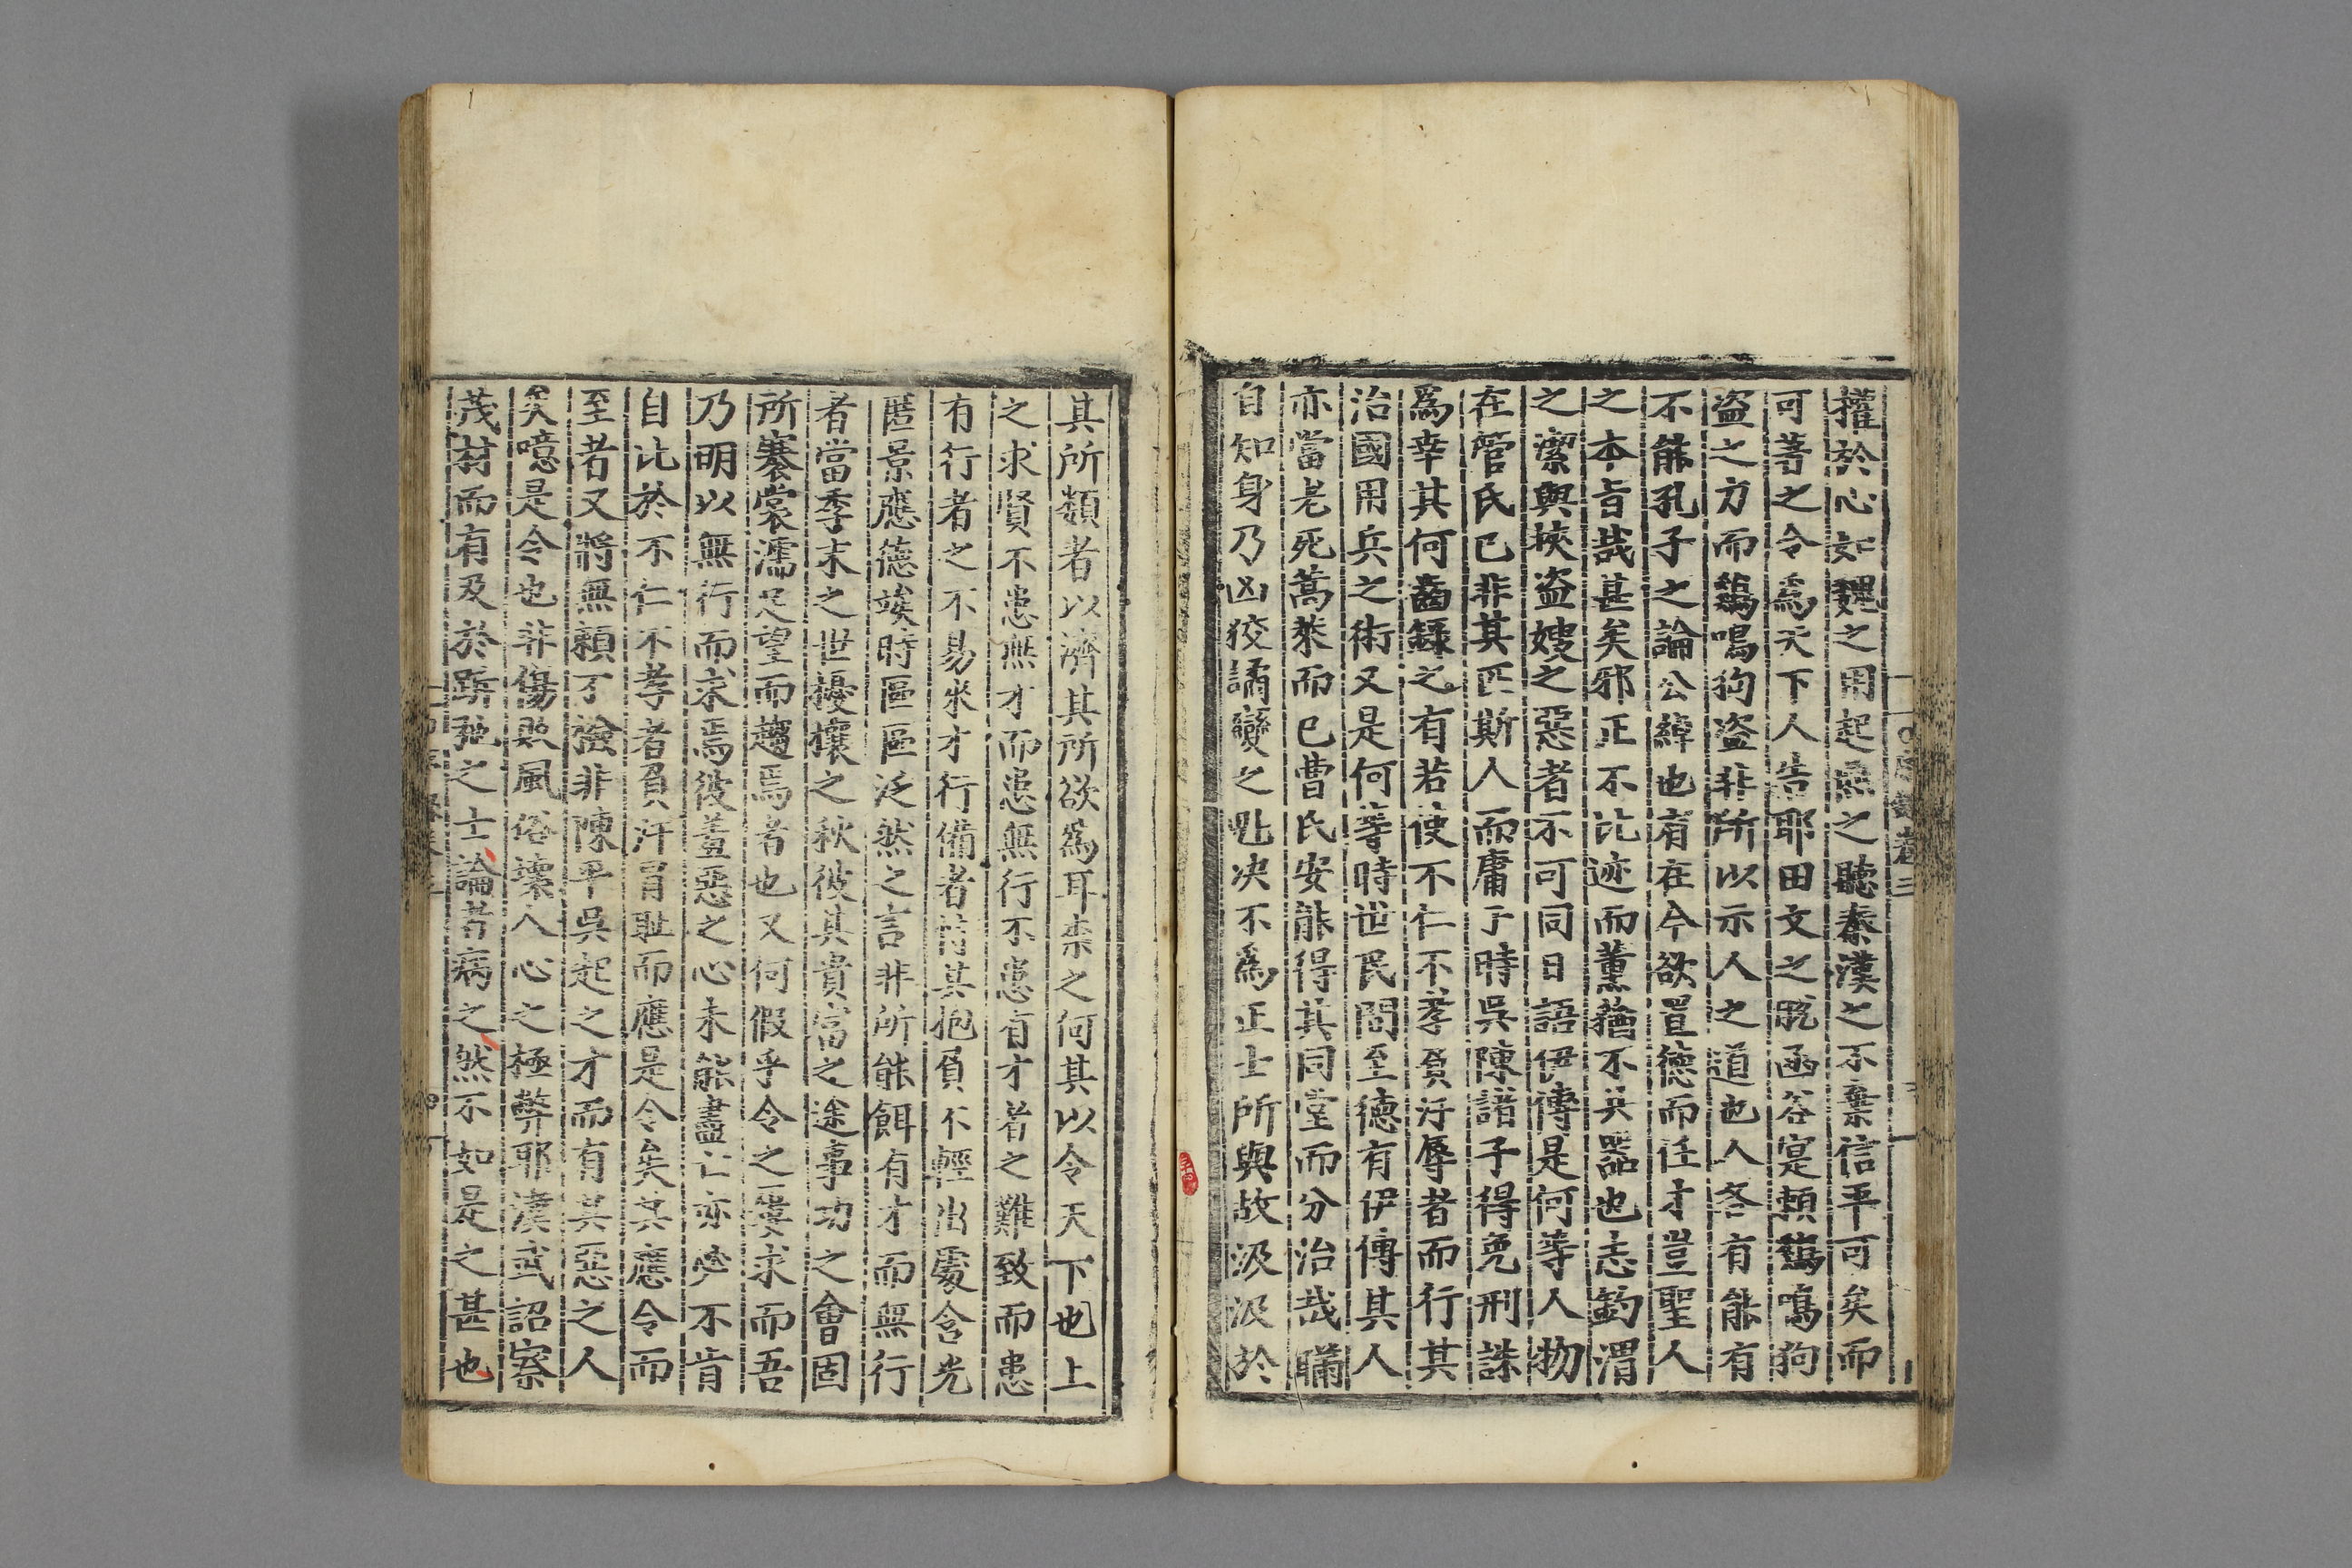 權於心如魏之用起無之聽秦漢之不棄信平可矣而
可等之令爲天下人告耶田文之脫函谷寔賴鷄鳴狗
盜之力而鷄鳴狗盜非所以示人之道也人各有能有
不能孔子之論公綽也有在今欲置德而任才豈聖人
之本旨哉甚矣邪正不比迹而薰蕕不共器也志鈞渭
之潔與挾盜嫂之惡者不可同日語伊傅是何等人物
在管氏已非其匹斯人而庸于時吳陳諸子得免刑誅
爲幸其何齒錄之有若使不仁不孝貧汙辱者而行其
治國用兵之術又是何等時世民間至德有伊傅其人
亦當老死蒿萊而已曹氏安能得其同堂而分治哉瞞
自知身乃凶狡譎變之魁決不爲正士所與故汲汲於
其所類者以濟其所欲爲耳柰之何其以令天下也上
之求賢不患無才而患無行不患有才者之難致而患
有行者之不易來才行備者若其抱負不輕出處含光
匿景應德竢時區區泛然之言非所能餌有才而無行
者當季末之世擾攘之秋彼其貴富之途事功之會固
所褰裳濡足望而趨焉者也又何假乎令之募求而吾
乃明以無行而求焉彼羞惡之心未能盡亡亦必不肯
自比於不仁不孝者負汙冒耻而應是令矣其應令而
至者又將無賴不檢非陳平吳起之才而有其惡之人
矣噫是令也非傷敗風俗壞人心之極弊耶漢武詔察
茂材而有及於跅弛之士論者病之然不如是之甚也